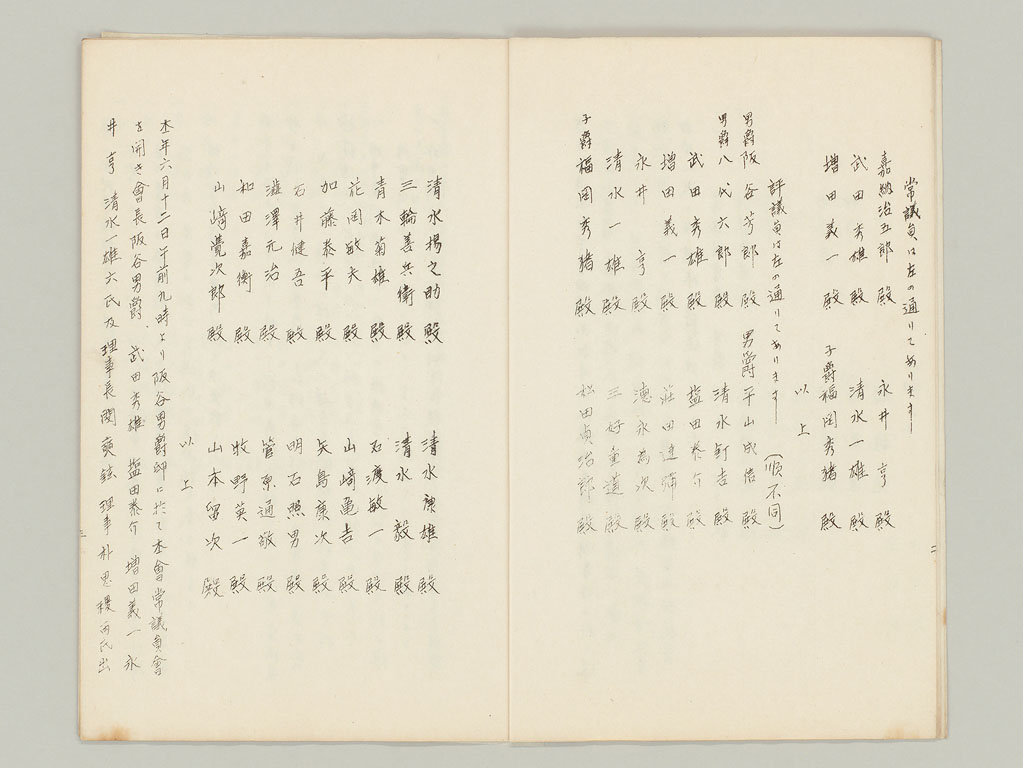 常議員は左の通りてあります
嘉納治五郎殿 永井亨殿
武田秀雄殿 清水一雄殿
増田義一殿 子爵福岡秀猪殿
以上
評議員は左の通りてあります (順不同)
男爵阪谷芳郎殿 男爵平山成信殿
男爵八代六郎殿 清水釘吉殿
武田秀雄殿 塩田泰介殿
増田義一殿 荘田達弥殿
永井亨殿 徳永為次殿
清水一雄殿 三好重道殿
子爵福岡秀猪殿 松田貞治郎殿
清水揚之助殿 清水康雄殿
三輪善兵衛殿 清水毅殿
青木菊雄殿 石渡敏一殿
花岡敏夫殿 山崎亀吉殿
加藤泰平殿 矢島廉次殿
石井健吾殿 明石照男殿
澁澤元治殿 菅原通敬殿
和田嘉衡殿 牧野英一殿
山崎覺次郎殿 山本留次殿
以上
本年六月十二日午前九時より阪谷男爵邸に於て本會常議員會
を開き會長阪谷男爵、武田秀雄 塩田泰介 増田義一 永
井亨 清水一雄六氏及理事長閔奭鉉 理事朴思稷両氏出
二
三